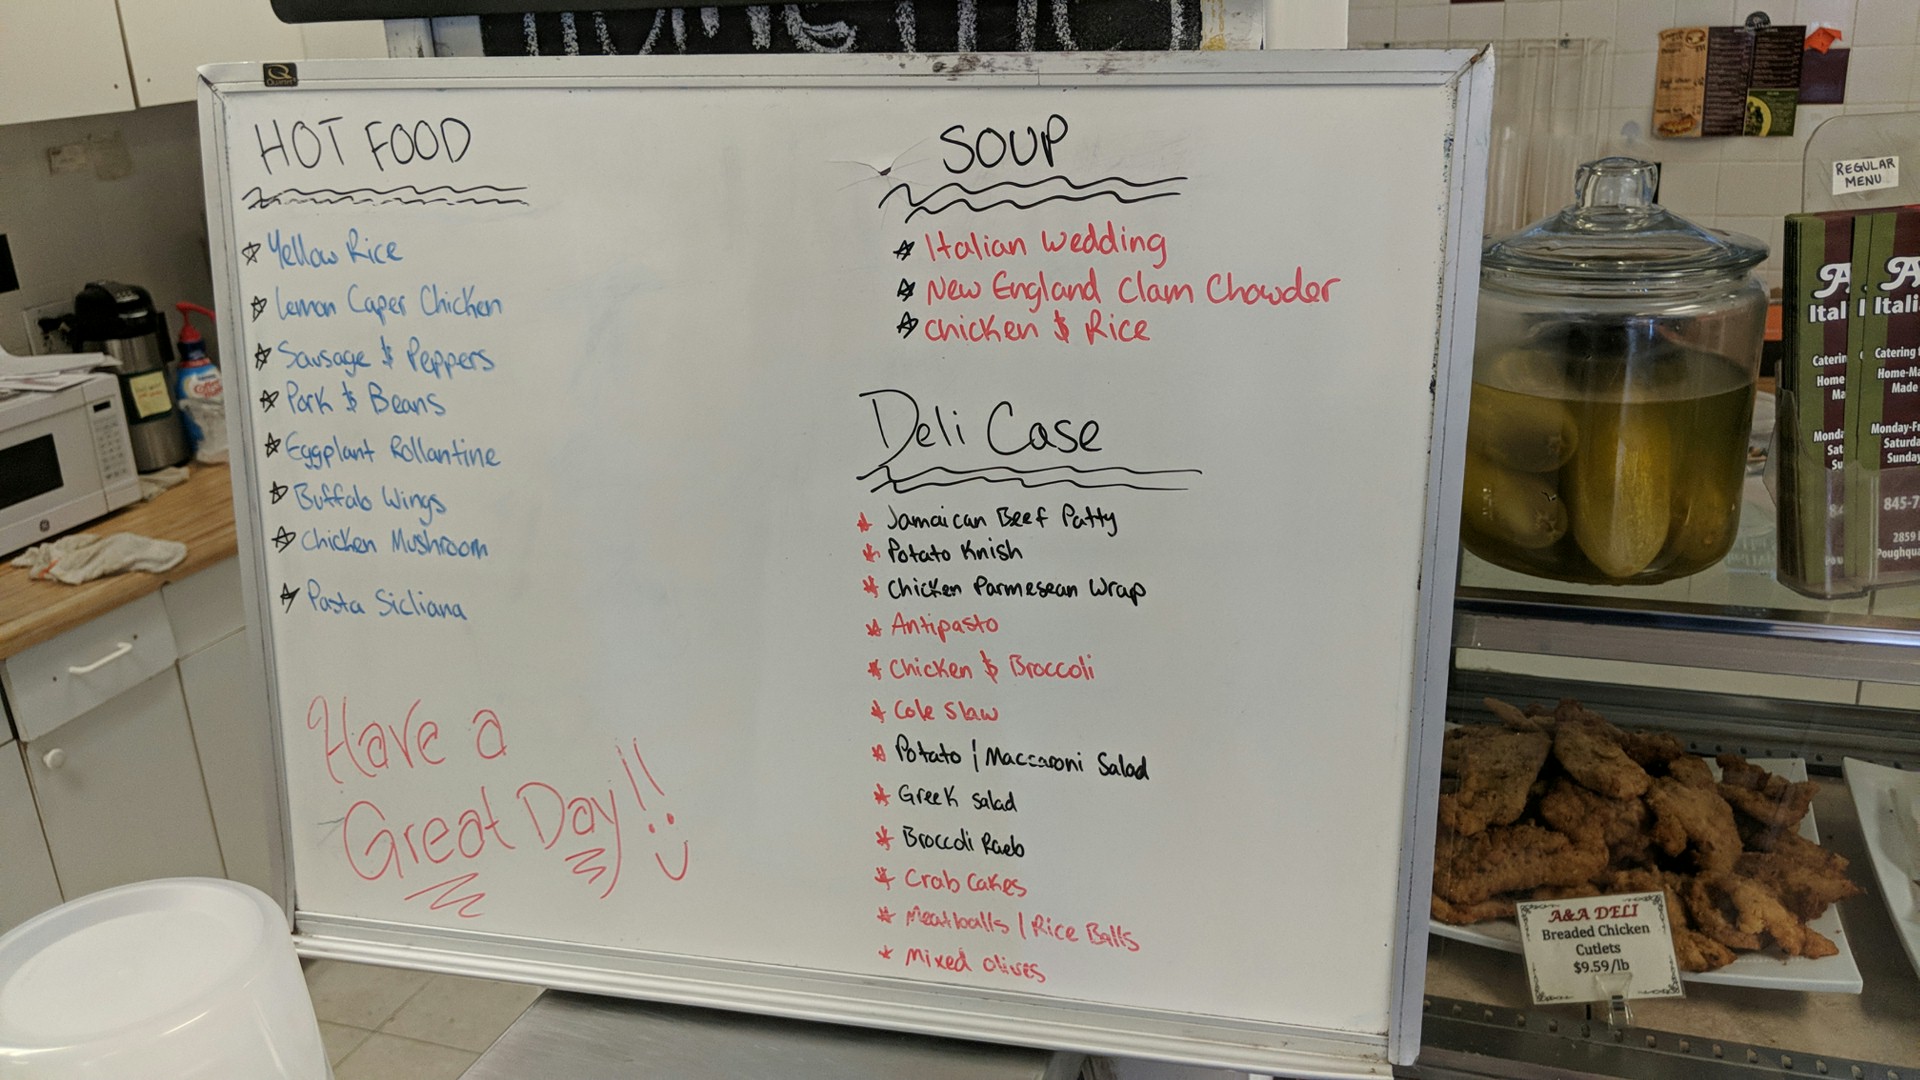 HOT FOOD
Yellow Rice
Lemon Caper Chicken
Sausage & Peppers
Pork & Beans
Eggplant Rollantine
Buffalo Wings
Chicken Mushroom
Pasta Sicliana
Have a
Great Day!!
SOUP
Italian Wedding
New England Clam Chowder
Chicken & Rice
Deli Case
Jamaican Beef Patty
Potato Knish
Chicken Parmesean Wrap
Antipasto
Chicken & Broccoli
Cole Slaw
Potato / Maccaroni Salad
Greek Salad
Broccoli Raeb
Crab Cakes
Meatballs / Rice Balls
Mixed olives
REGULAR
MENU
Catering
Home-Ma
Made
Monday-Fr
Saturda
Sunday
845-7
2859
Poughqua
A&A DELI
Breaded Chicken
Cutlets
$9.59/lb